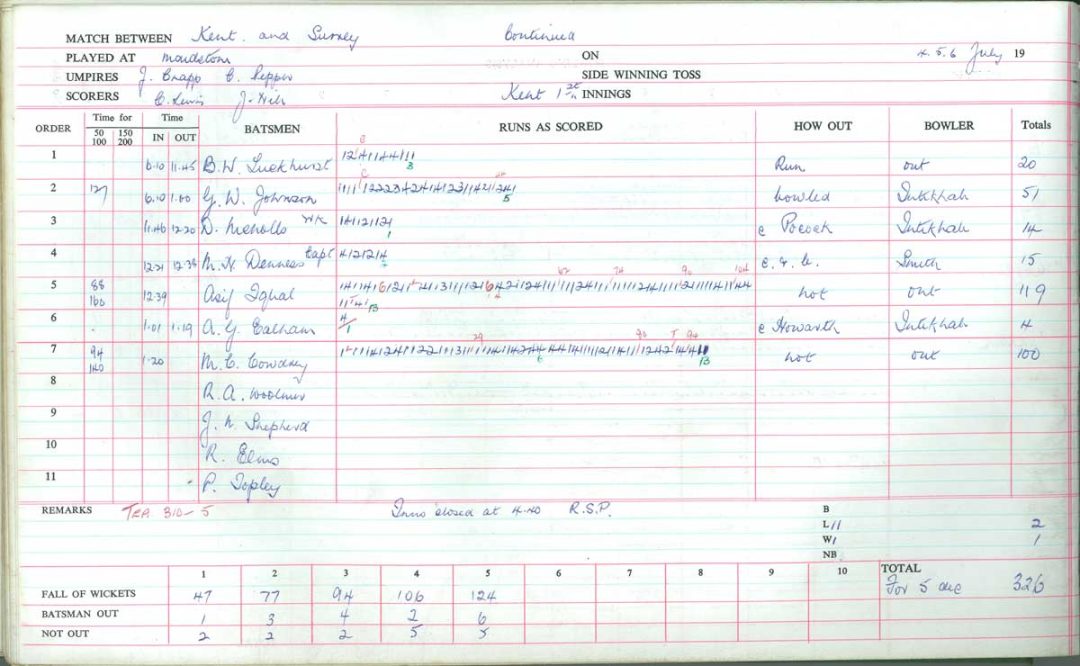 MATCH BETWEEN Kent and Surrey Continued
PLAYED AT Maidstone ON 4.5.6 July 19
UMPIRES J. Crapp C. Pepper SIDE WINNING TOSS
SCORERS C. Lewis J. Hill Kent 1st INNINGS
ORDER Time for Time BATSMEN RUNS AS SCORED HOW OUT BOWLER Totals
50 150 IN OUT
100 200
1 6.10 11.45 B.W. Luckhurst Run out 20
2 127 6.10 1.00 G.W. Johnson bowled Intikhab 51
3 11.46 12.20 D. Nicholls WK c Pocock Intikhab 14
4 12.21 12.38 M.H. Denness Capt c. & b. Smith 15
5 88 160 12.39 Asif Iqbal not out 119
6 1.01 1.19 A.G. Ealham 4 c Howarth Intikhab 4
7 94 140 1.20 M.C. Cowdrey not out 100
8 R.A. Woolmer
9 J.N. Shepherd
10 R. Elms
11 P. Topley
REMARKS TEA 310-5 Inns closed at 4.40 R.S.P. B
L 11 2
W 1 1
NB
1 2 3 4 5 6 7 8 9 10 TOTAL
FALL OF WICKETS 47 77 94 106 124 For 5 dec 326
BATSMAN OUT 1 3 4 2 6
NOT OUT 2 2 2 5 5